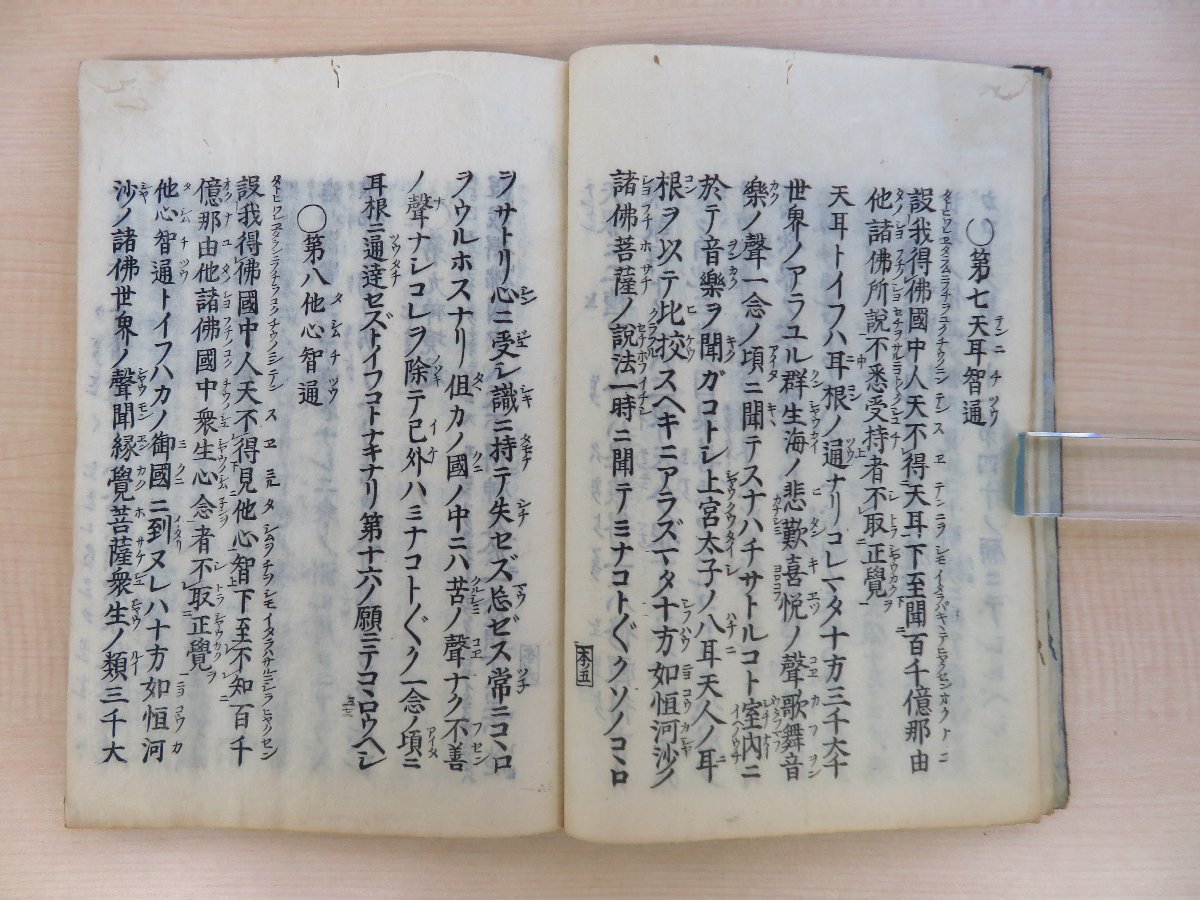 〇第七天耳智通
設我得佛國中人天不得天耳下至聞百千億那由
他諸佛所說不悉受持者不取正覺
天耳トイフハ耳根ノ通ナリコレマタ十方三千大千
世界ノアラユル群生海ノ悲歎喜悦ノ聲歌舞音
樂ノ聲一念ノ頃ニ聞テスナハチサトルコト室内ニ
於テ音樂ヲ聞ガコトシ上宮太子ノ八耳天人ノ耳
根ヲ以テ比挍スヘキニアラズマタ十方如恒河沙ノ
諸佛菩薩ノ說法一時ニ聞テミナコト〲クソノコヽロ
本五
ヲサトリ心ニ受シ識ニ持テ失セズ忘ゼス常ニコヽロ
ヲウルホスナリ但カノ國ノ中ニハ苦ノ聲ナク不善
ノ聲ナシコレヲ除テ已外ハミナコト〲ク一念ノ頃ニ
耳根ニ通達セズトイフコトナキナリ第十六ノ願ニテコヽロウヘシ
〇第八他心智通
設我得佛國中人天不得見他心智下至不知百千
億那由他諸佛國中衆生心念者不取正覺
他心智通トイフハカノ御國ニ到ヌレハ十方如恒河
沙ノ諸佛世界ノ聲聞緣覺菩薩衆生ノ類三千大